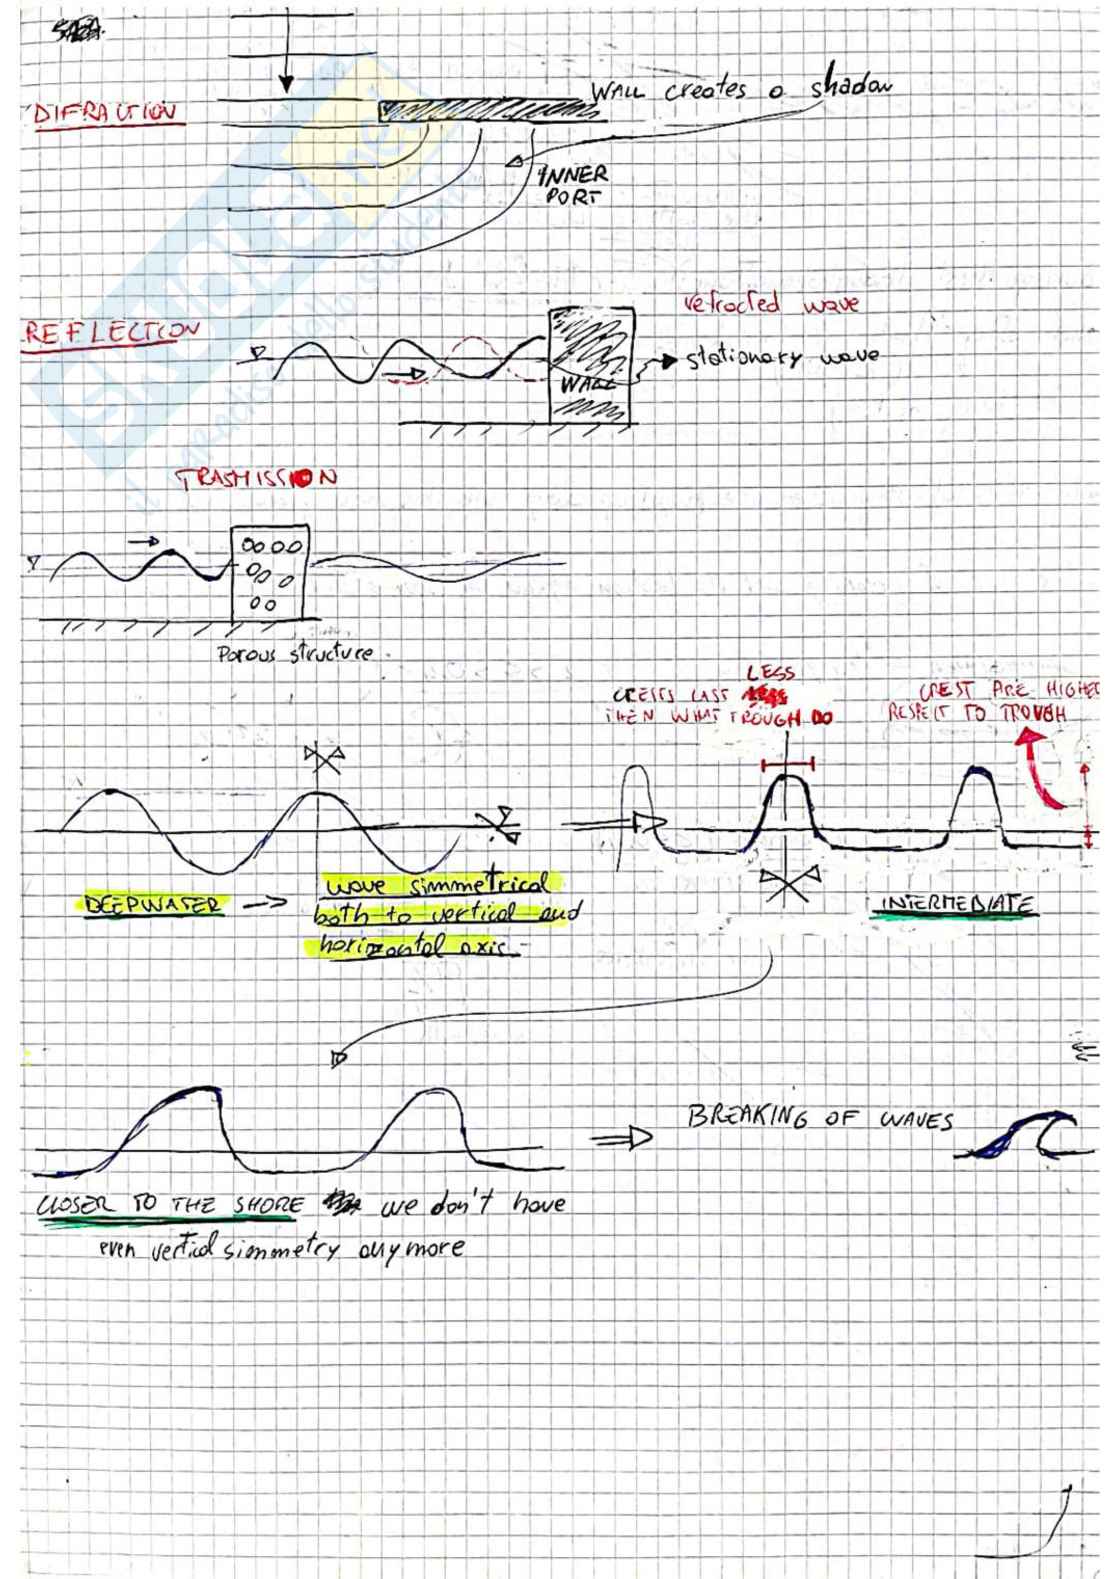 DIFRACTION
WALL creates a shadow
INNER
PORT
REFLECTION
refracted wave
stationary wave
WALL
TRASMISSION
Porous structure
LESS
CRESTS LAST
THEN WHAT TROUGH DO
CREST ARE HIGHER
RESPECT TO TROUGH
DEEPWATER
wave simmetrical
both to vertical and
horizontal axis
INTERMEDIATE
BREAKING OF WAVES
CLOSER TO THE SHORE we don't have
even vertical simmetry anymore